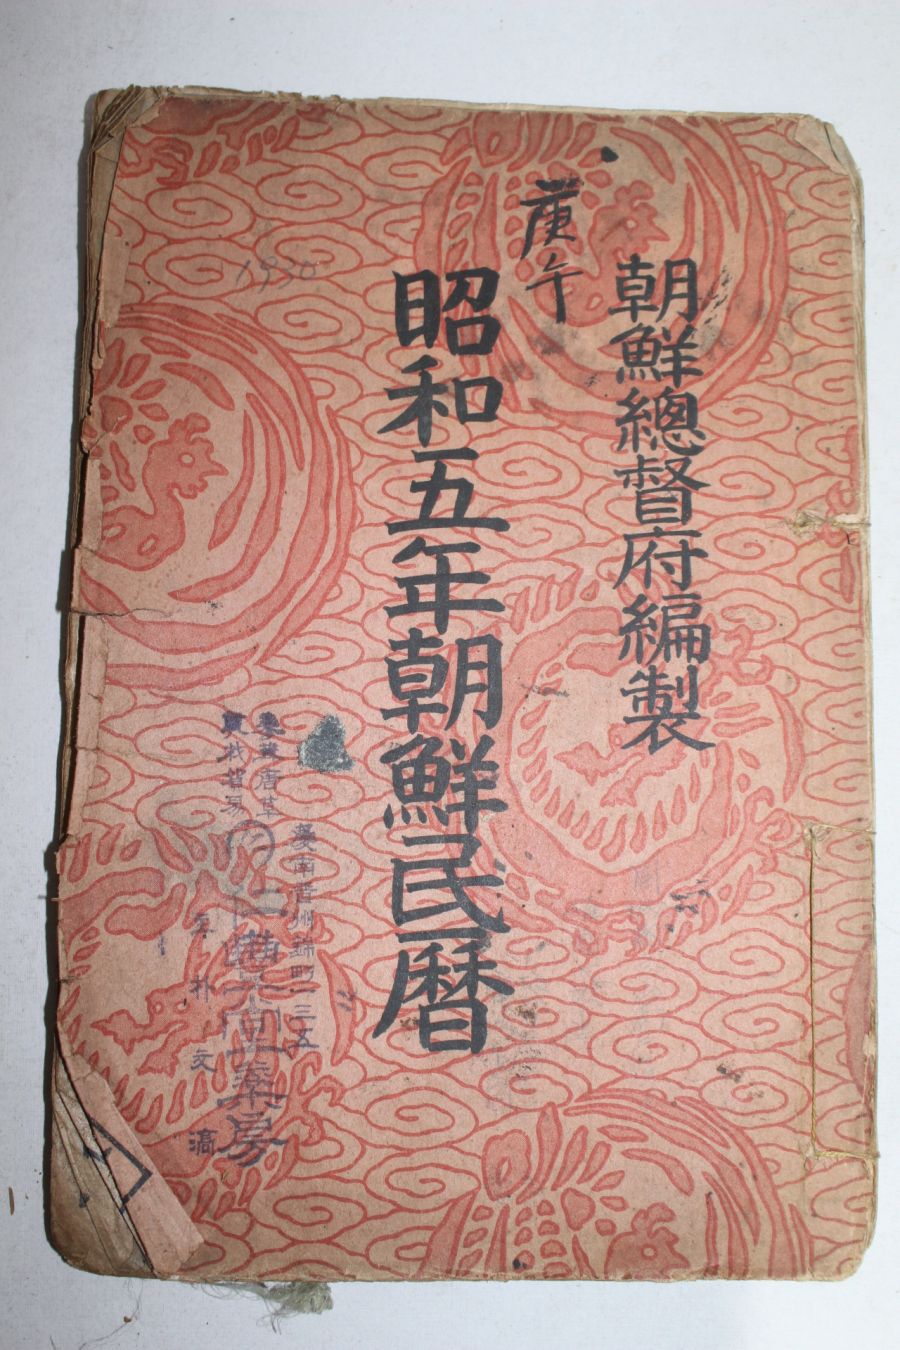 朝鮮總督府編製
庚午
昭和五年朝鮮民曆
1930
南晋州錦町一三五
堂藥房
朴文